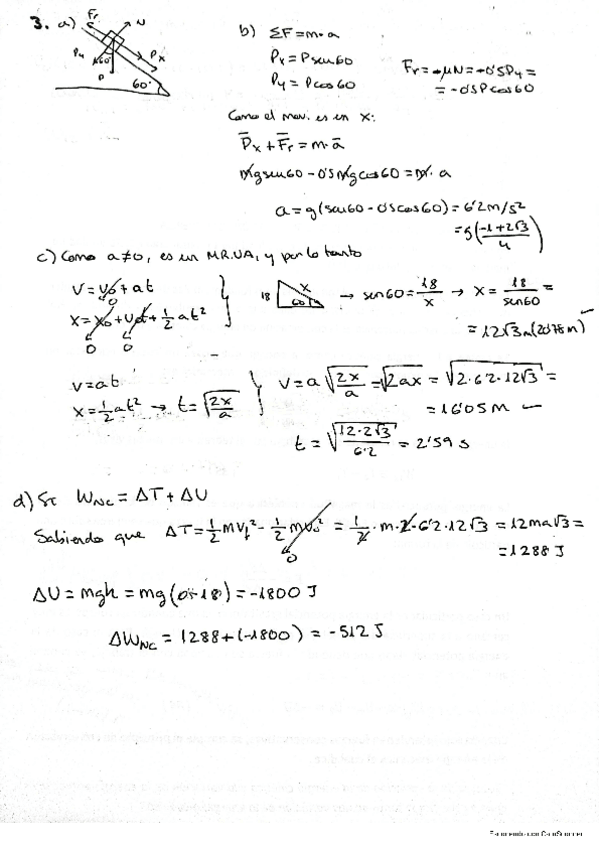 3. a) Fr N Py Px 60° P 60°
b) ΣF = m·a
Px = P sen 60
Py = P cos 60
Fr = -μN = -0'5Py =
= -0'5P cos 60
Como el mov. es en x:
P̄x + F̄r = m·ā
mg sen 60 - 0'5 mg cos 60 = m·a
a = g(sen 60 - 0'5 cos 60) = 6'2 m/s²
= g((-1+2√3)/4)
c) Como a≠0, es un MRUA, y por lo tanto
v = v₀ + at
0
x = x₀ + v₀t + 1/2 at²
0 0
18 x 60 → sen 60 = 18/x → x = 18/sen 60 =
= 12√3 m (20'78 m)
v = at
x = 1/2 at² → t = √(2x/a)
v = a√(2x/a) = √(2ax) = √(2·6'2·12√3) =
= 16'05 m
t = √(12·2√3/6'2) = 2'59 s
d) Si W_NC = ΔT + ΔU
Sabiendo que ΔT = 1/2 mv_f² - 1/2 mv₀² = 1/2·m·2·6'2·12√3 = 12ma√3 =
0
= 1288 J
ΔU = mgh = mg(0-18) = -1800 J
ΔW_NC = 1288 + (-1800) = -512 J